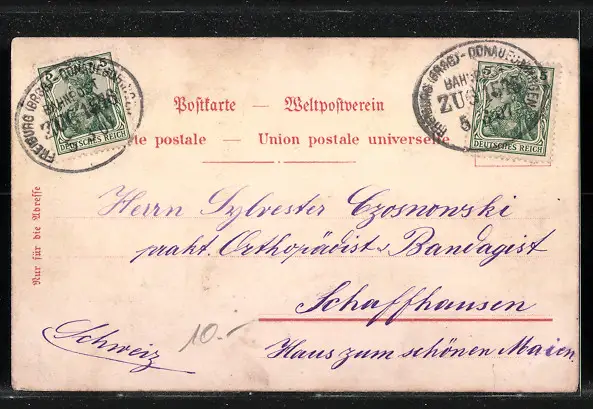 FREIBURG (BRSG)-DONAUESCHINGEN
BAHNPOST
ZUG
DEUTSCHES REICH
5
5
FREIBURG (BRSG)-DONAUESCHINGEN
BAHNPOST
ZUG
DEUTSCHES REICH
Postkarte — Weltpostverein
te postale — Union postale universelle
Nur für die Adresse
Herrn Sylvester Czosnowski
prakt. Orthopädist u Bandagist
Schaffhausen
Schweiz
10.-
Haus zum schönen Maien.